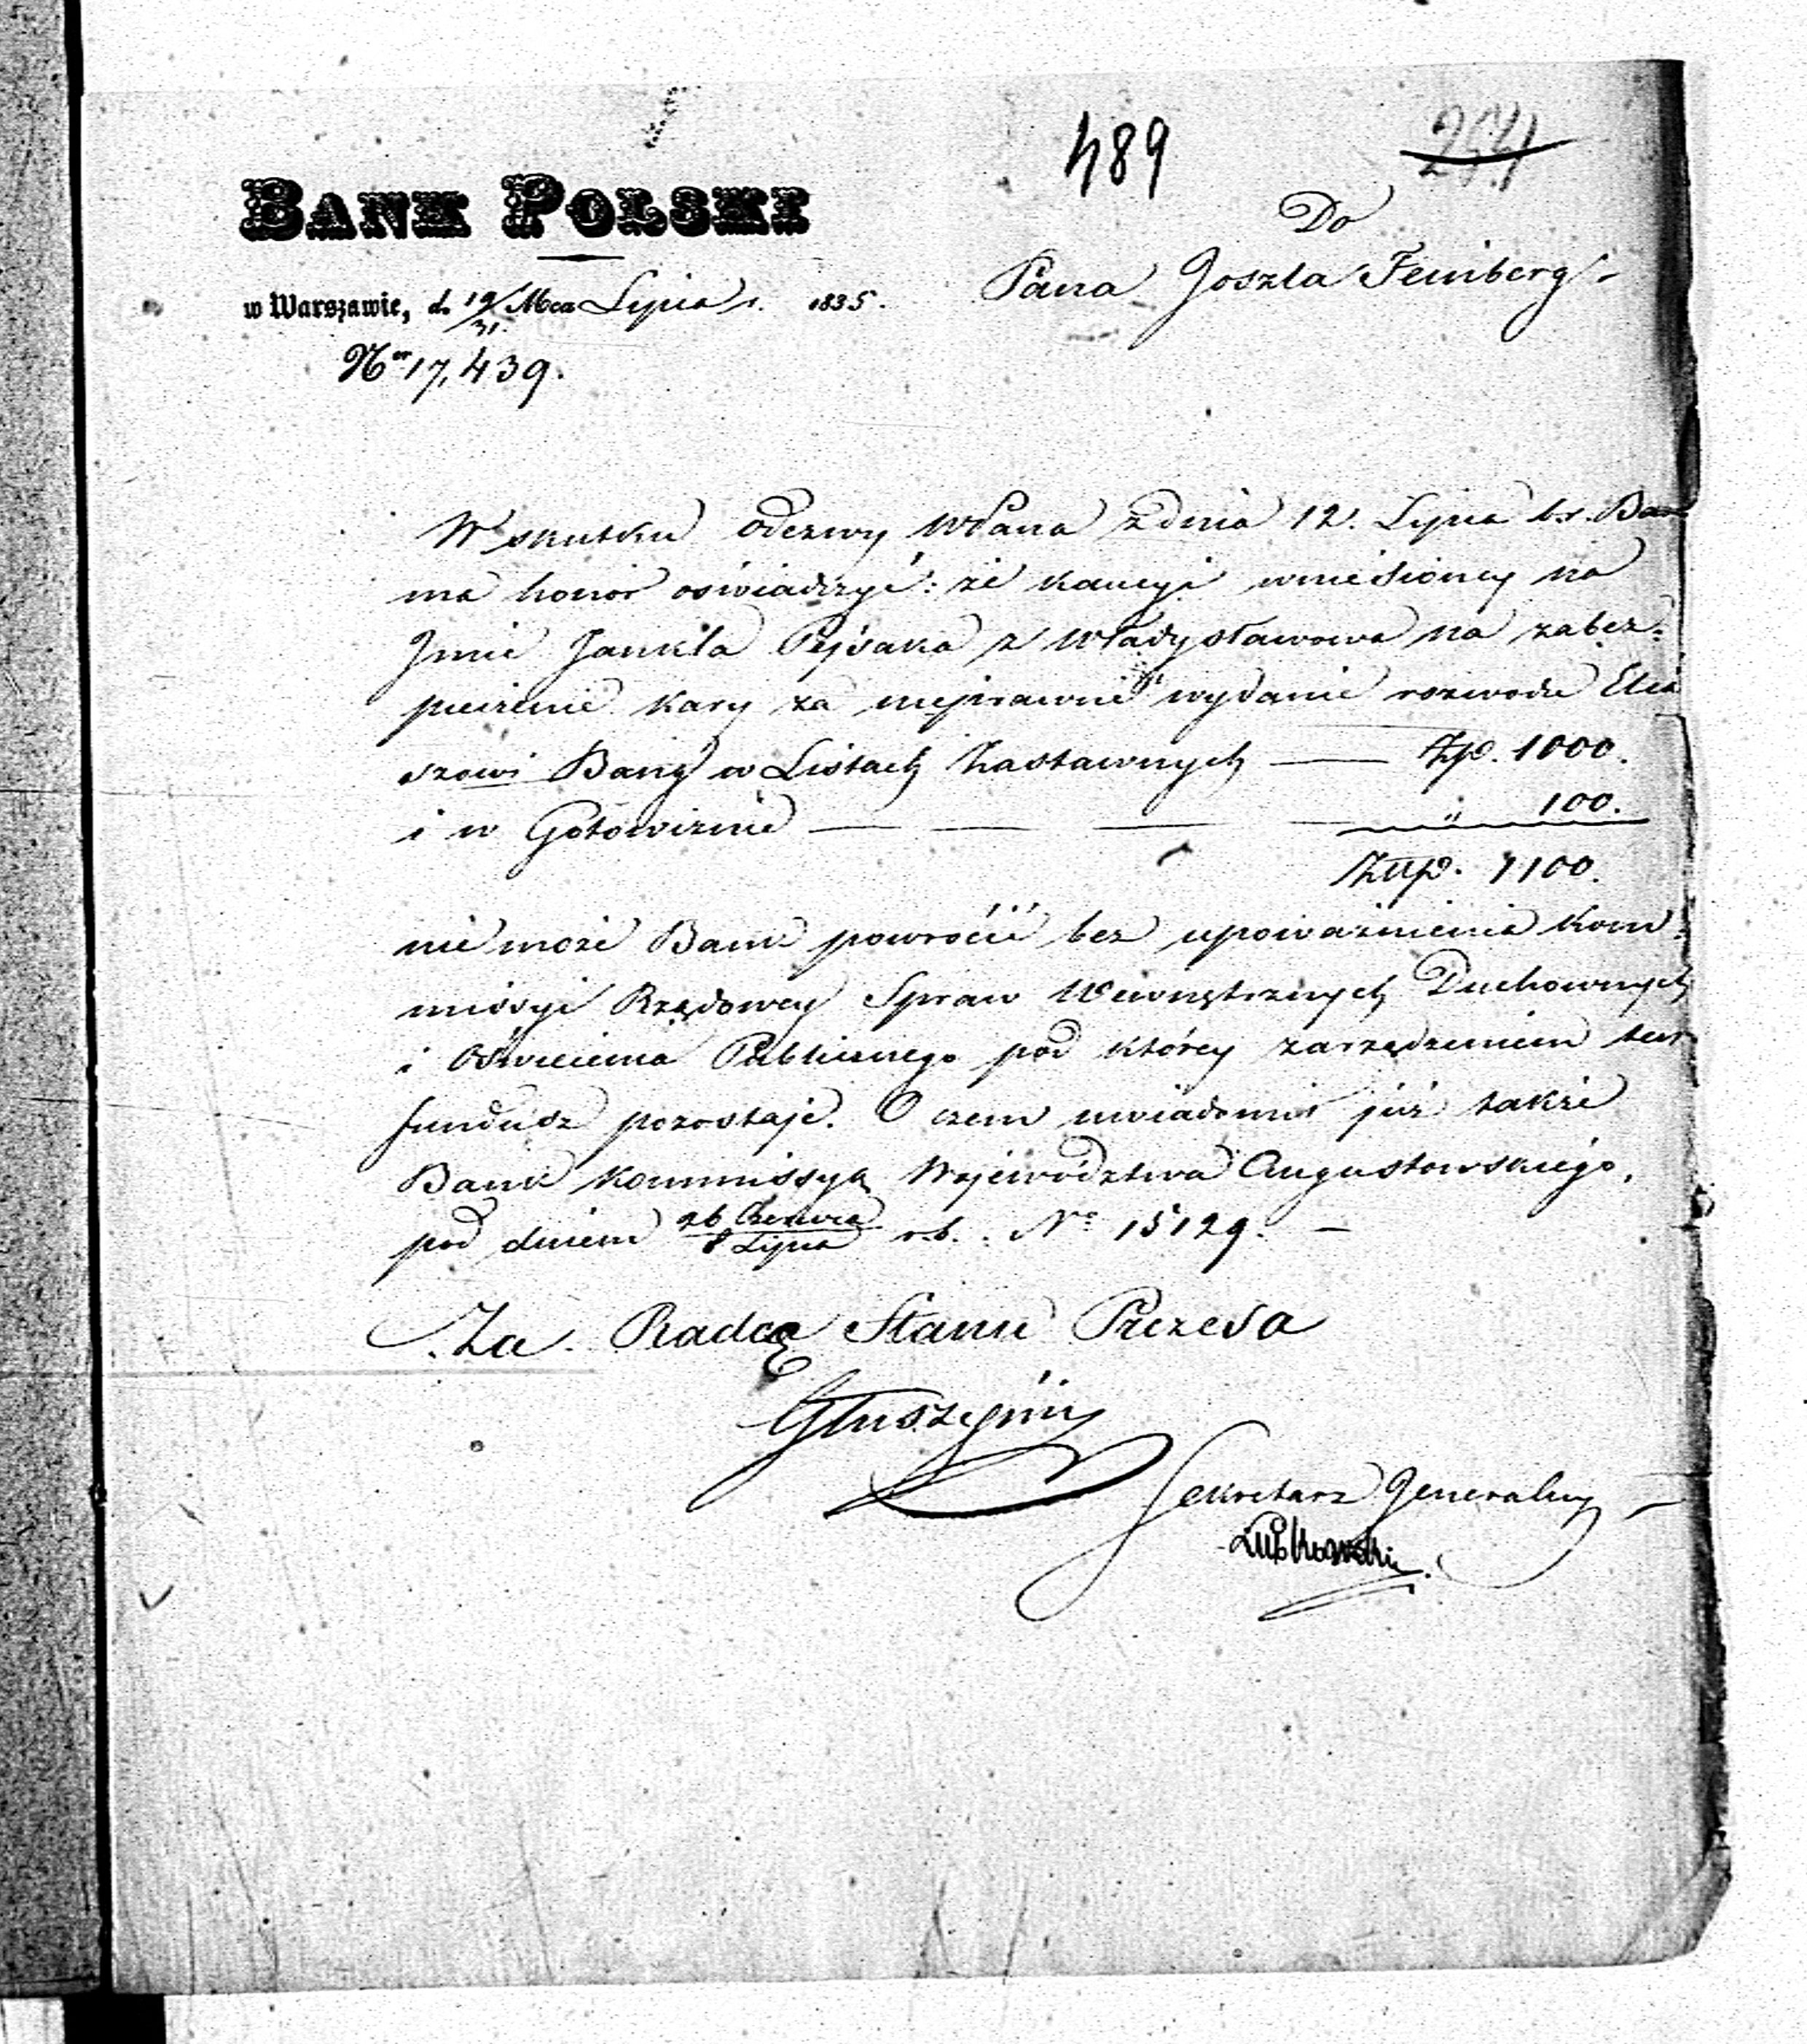 489
254
BANK POLSKI
Do
Pana Joszla Feinberg
w Warszawie, d. 19/31. Mca Lipca r. 1835.
Ner 17,439.
W skutku odezwy WPana z dnia 12. Lipca b.r. Ban
ma honor oświadczyć: że kaucyi wniesioney na
Imie Jankla Pejsaka z Władysławowa na zabez=
pieczenie kary za nieprawne wydanie rozwodu Elia
szowi Bang w Listach Zastawnych — Złp. 1000.
i w Gotowiznie — — — — " 100.
Złłp. 1100.
nie może Bank powrócić bez upoważnienia Kom=
missyi Rządowey Spraw Wewnętrznych Duchownych
i Oświecenia Publicznego pod którey zarządzeniem ten
fundusz pozostaje. O czem uwiadomił już także
Bank Kommissyą Wojewodztwa Augustowskiego,
pod dniem 26 Czerwca / 8 Lipca r.b. No 15129. —
Za Radcę Stanu Prezesa
Głuszyński
Sekretarz Generalny
Lubkowski